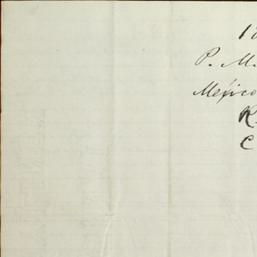 P. M.
Mexico
R
C